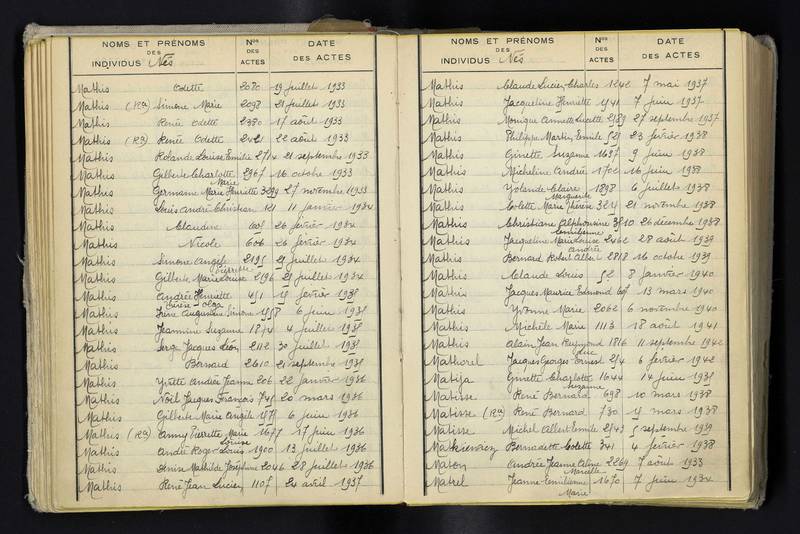 NOMS ET PRÉNOMS DES INDIVIDUS Nés | Nos DES ACTES | DATE DES ACTES
Mathis Odette 2080 19 juillet 1933
Mathis (Ra) Simone Marie 2098 21 juillet 1933
Mathis Renée Odette 2380 17 août 1933
Mathis (Ra) Renée Odette 2421 22 août 1933
Mathis Rolande Louise Emilie 2714 21 septembre 1933
Mathis Gilberte Charlotte 2967 16 octobre 1933
Marie
Mathis Germaine Marie Henriette 3299 27 novembre 1933
Mathis Louis André Christian 121 11 janvier 1934
Mathis Claudine 605 26 février 1934
Mathis Nicole 606 26 février 1934
Mathis Simone Angèle 2195 21 juillet 1934
Pierrette
Mathis Gilberte Marie Louise 2196 21 juillet 1934
Mathis Andrée Henriette 451 15 février 1935
Irène Olga
Mathis Augustine Simone 1558 6 juin 1935
Mathis Jeannine Suzanne 1854 4 juillet 1935
Mathis Serge Jacques Léon 2112 30 juillet 1935
Mathis Bernard 2610 21 septembre 1935
Mathis Yvette Andrée Jeanne 206 22 janvier 1936
Mathis Noël Jacques François 745 20 mars 1936
Mathis Gilberte Marie Angèle 6 juin 1936
Mathis (Ra) Anny Pierrette Marie 1677 17 juin 1936
Louise
Mathis André Roger Louis 1900 13 juillet 1936
Mathis Denise Mathilde Joséphine 2046 28 juillet 1936
Mathis René Jean Lucien 1107 24 avril 1937
NOMS ET PRÉNOMS DES INDIVIDUS Nés | Nos DES ACTES | DATE DES ACTES
Mathis Claude Lucien Charles 1242 7 mai 1937
Mathis Jacqueline Henriette 1541 7 juin 1937
Mathis Monique Annette Lucette 2589 27 septembre 1937
Mathis Philippe Martin Emile 525 23 février 1938
Mathis Ginette Suzanne 1637 9 juin 1938
Mathis Micheline Andrée 1702 16 juin 1938
Mathis Yolande Claire 1898 6 juillet 1938
Marguerite
Mathis Colette Marie Thérèse 3254 21 novembre 1938
Mathis Christiane Alphonsine 3510 26 décembre 1938
Emilienne
Mathis Jacqueline Marie Louise 2462 28 août 1939
André
Mathis Bernard Robert Albert 2818 16 octobre 1939
Mathis Claude Louis 52 8 janvier 1940
Mathis Jacques Maurice Edmond 607 13 mars 1940
Mathis Yvonne Marie 2062 6 novembre 1940
Mathis Michèle Marie 1113 18 août 1941
Mathis Alain Jean Raymond 1816 11 septembre 1942
Luc
Mathorel Jacques Georges Ernest 254 6 février 1942
Matija Ginette Charlotte 1644 14 juin 1935
Suzanne
Matisse René Bernard 698 10 mars 1938
Matisse (Ra) René Bernard 730 15 mars 1938
Matisse Michel Albert Emile 2543 5 septembre 1939
Matkiewiez Bernadette Colette 341 4 février 1938
Maton Andrée Jeanne Céline 2269 7 août 1933
Marcelle
Matrel Jeanne Emilienne 1670 7 juin 1934
Marie